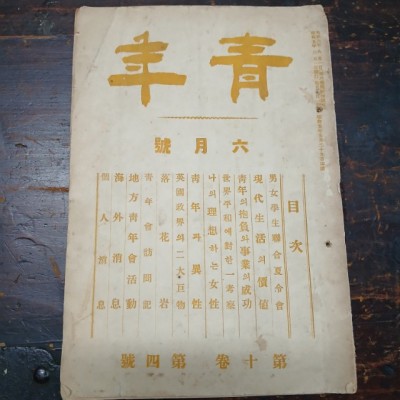 靑年
六月號
目次
男女學生聯合夏令會
現代生活의價値
靑年의抱負와事業의成功
世界平和에對한一考察
나의理想하는女性
靑年과異性
英國政界의二大巨物
落花岩
靑年會訪問記
地方靑年會活動
海外消息
個人消息
第十卷 第四號